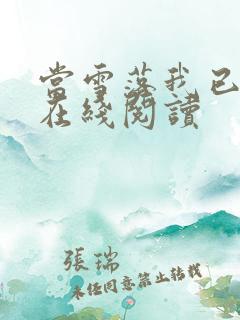 當雪落我已
在綫閱讀
張瑞
未經同意禁止轉載